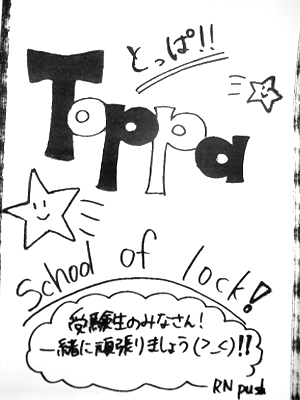 とっぱ!!
Toppa
School of lock!
受験生のみなさん!
一緒に頑張りましょう(>_<)!!
RN push